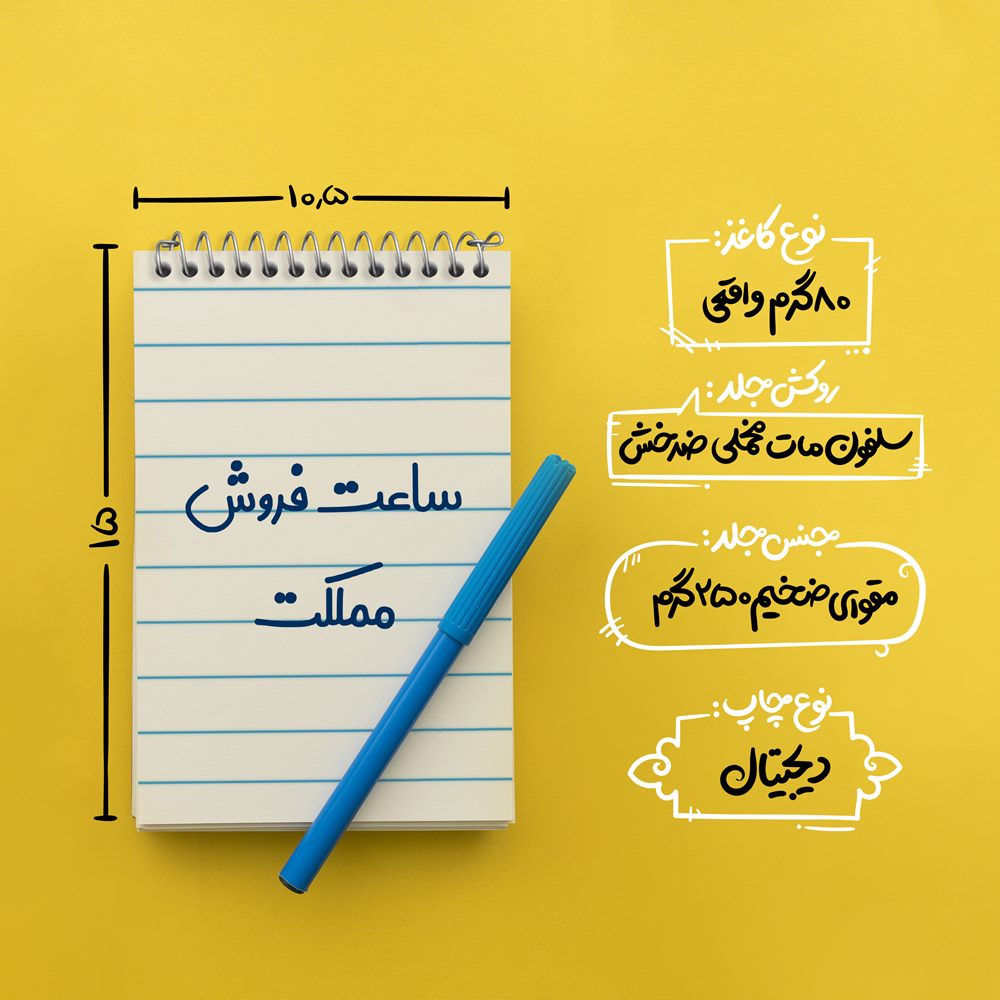 ۱۰٫۵
۱۵
ساعت فروش
مملکت
نوع کاغذ:
۸۰گرم واقعی
روکش جلد:
سلفون مات مخملی ضدخش
جنس جلد:
مقوای ضخیم ۲۵۰گرم
نوع چاپ:
دیجیتال